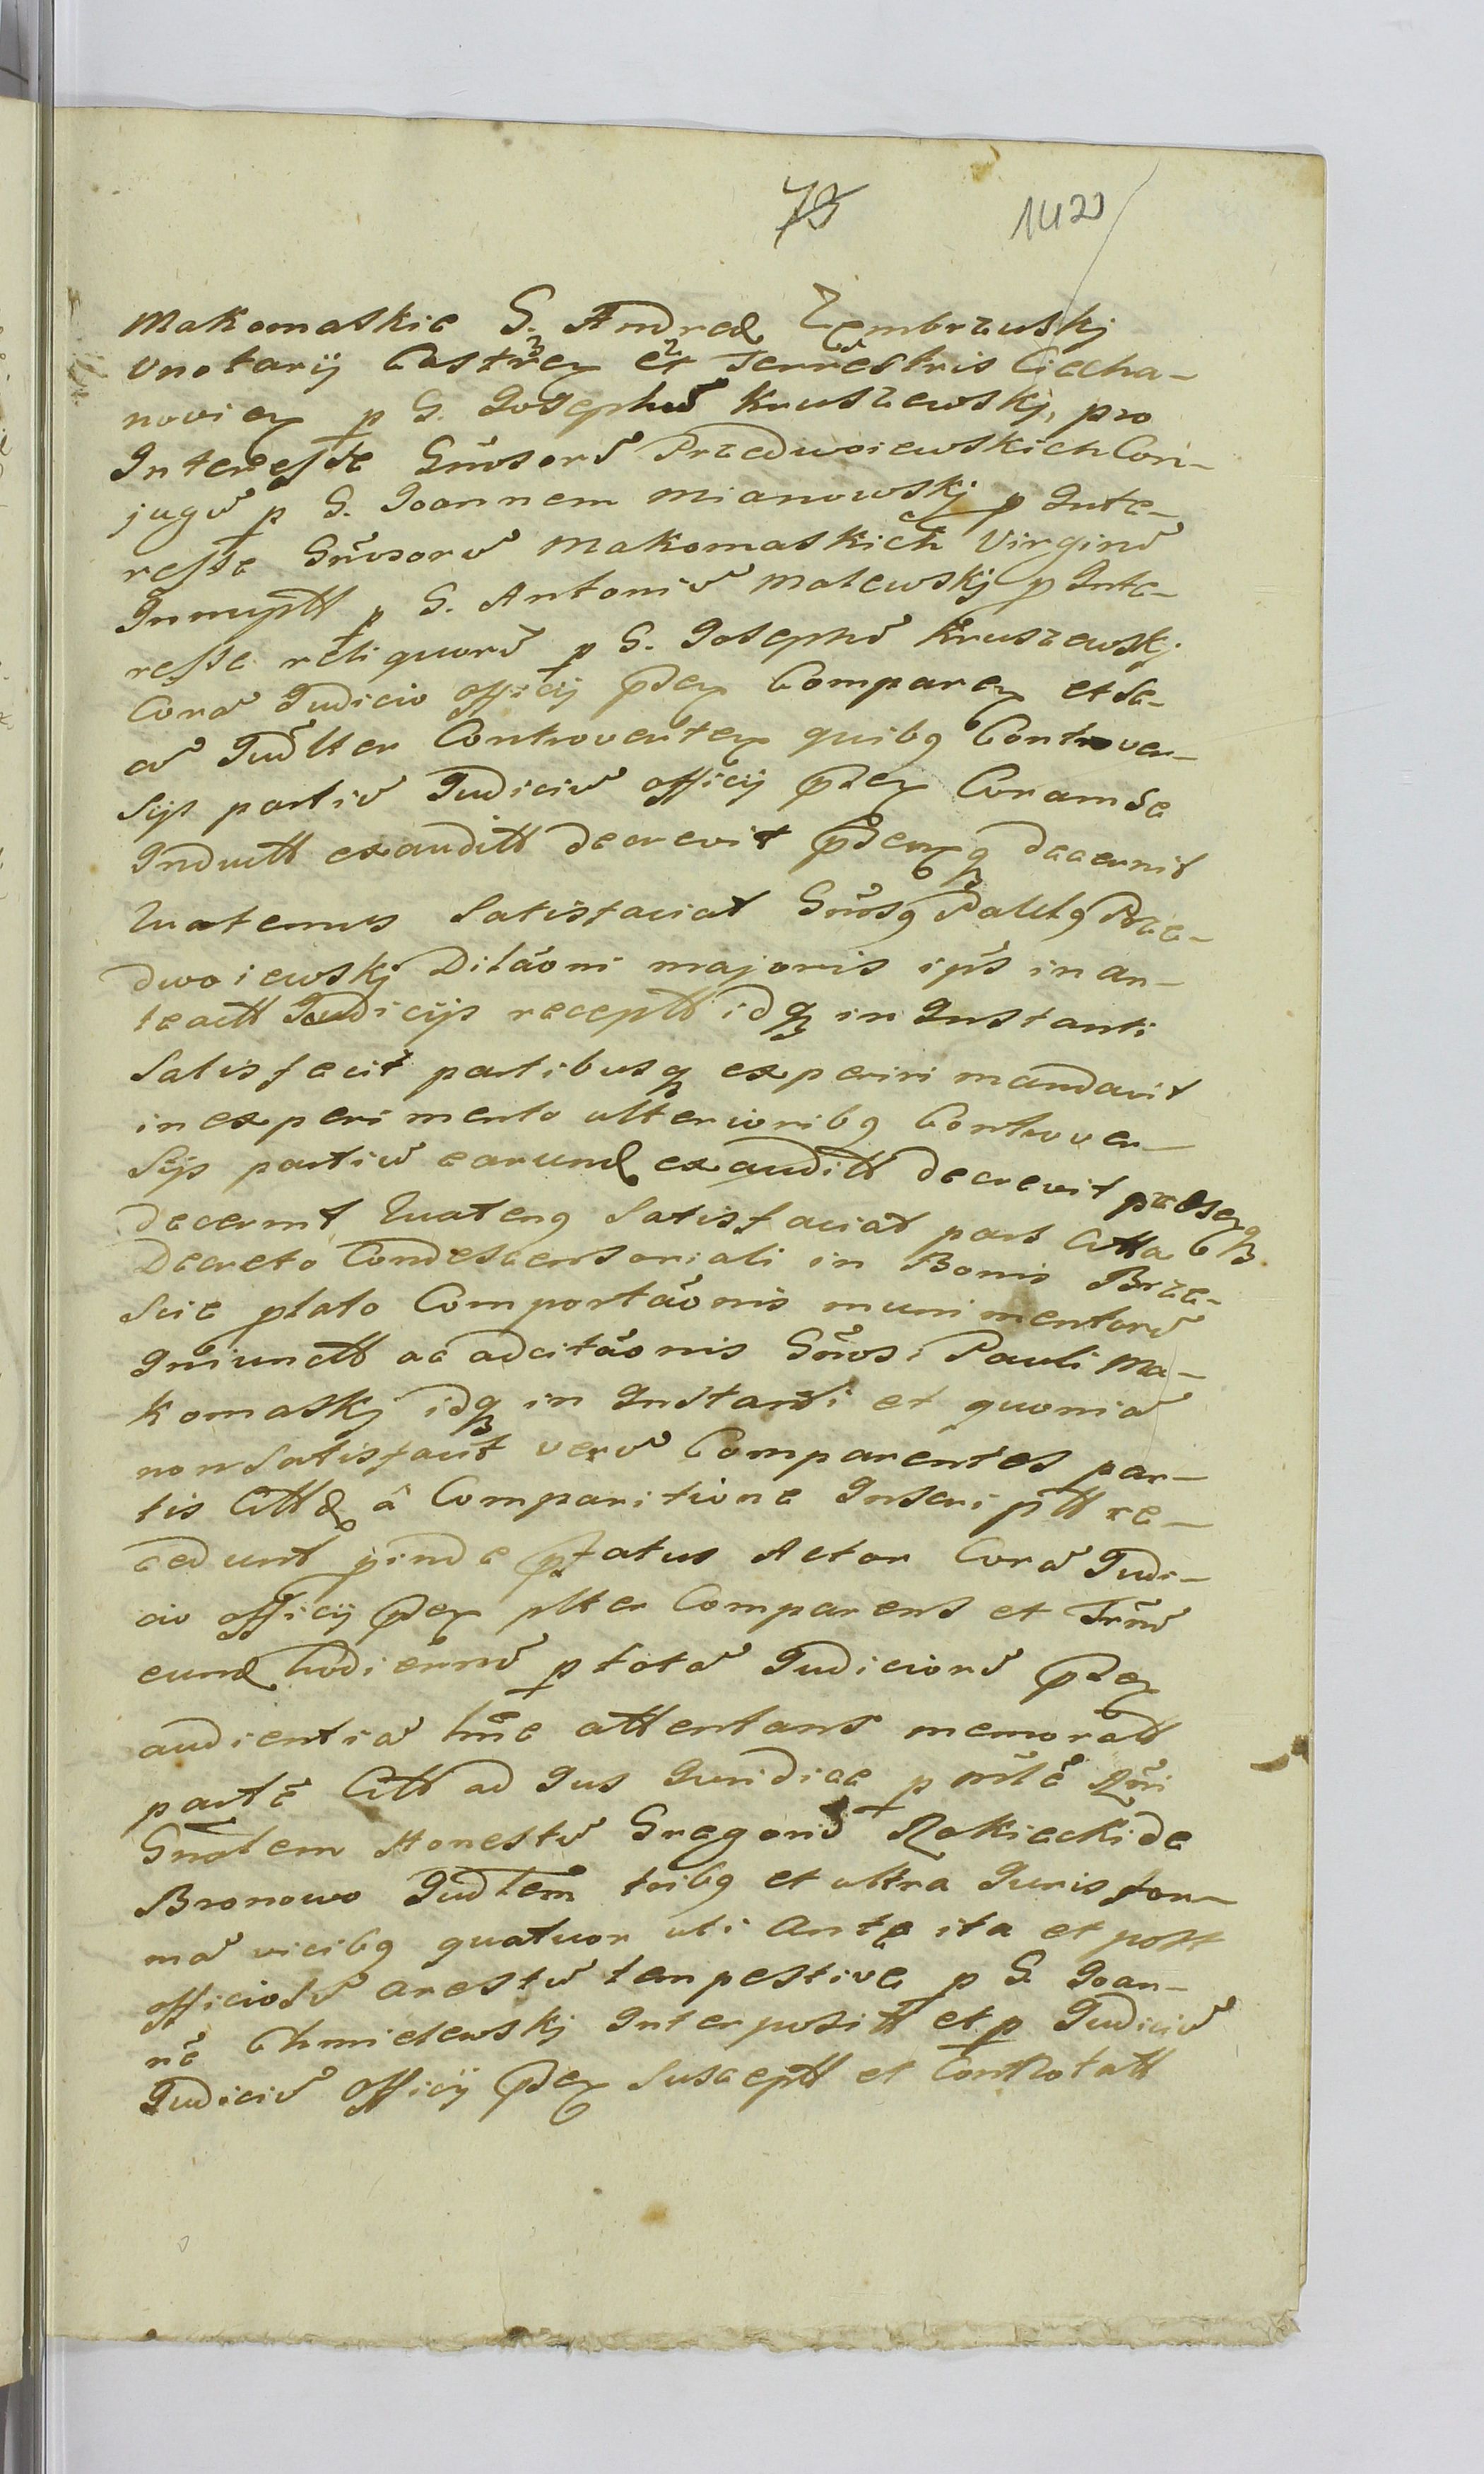 73
1420
Makomaskie G. Andreæ Zembrzuskj
Vnotarij Castrēn et Terrestris Ciecha-
novien p G. Josephũ Kruszewskj, pro
Interesse Gnŏsorũ Przedwoiewskich Con-
jugũ p G. Joannem Mianowskj p Inte-
resse Gnŏsorũ Makomaskich Virginũ
Innuptt p G. Antoniũ Malewskj p Inte-
resse reliquorũ p G. Josephũ Kruszewskj
Corã Judicio Officij pden Comparen et Se-
cũ Judlter Controverten quibq Controver-
sijs partiũ Judiciũ Officij pden Coram se
Induitt exauditt decrevit pdenq decernit
Quatenus Satisfaciat Gnŏsq Paulq Prze-
dwoiewskj Dilãoni majoris ips in an-
teactt Judicijs receptt idq in Instanti
Satisfecit partibusq experiri mandavit
in experimento ulterioribq Controver-
sijs partiũ earund exauditt decrevit praesenq
decernit Quatenq Satisfaciat pars Citta
Decreto Condescensoriali in Bonis Brze-
scie plato Comportãonis munimentorũ
Iniunctt ac adcitãonis Gnŏsi Pauli Ma-
komaskj idq in Instanti et quoniã
non Satisfacit verũ Comparentes par-
tis Cittæ à Comparitione Inscriptt re-
cedunt proinde pfatus Actor Corã Judi-
cio Officij pden plter Comparens et Trnũ
eund hodiernũ p totã Judiciorũ pden
audientiã hñc attentans memoratt
partẽ Citt ad Jus Juridice p Mlẽ Rñi
Gnalem Honestũ Gregoriũ Rokiecki de
Bronowo Judlem tribq et ultra Juris for-
mã vicibq quatuor uti ante ita et post
officiosũ arestũ tempestive p G. Joan-
nẽ Chmielewskj Interpositt et p Judiciũ
Judiciũ Officij pden Susceptt et Connotatt